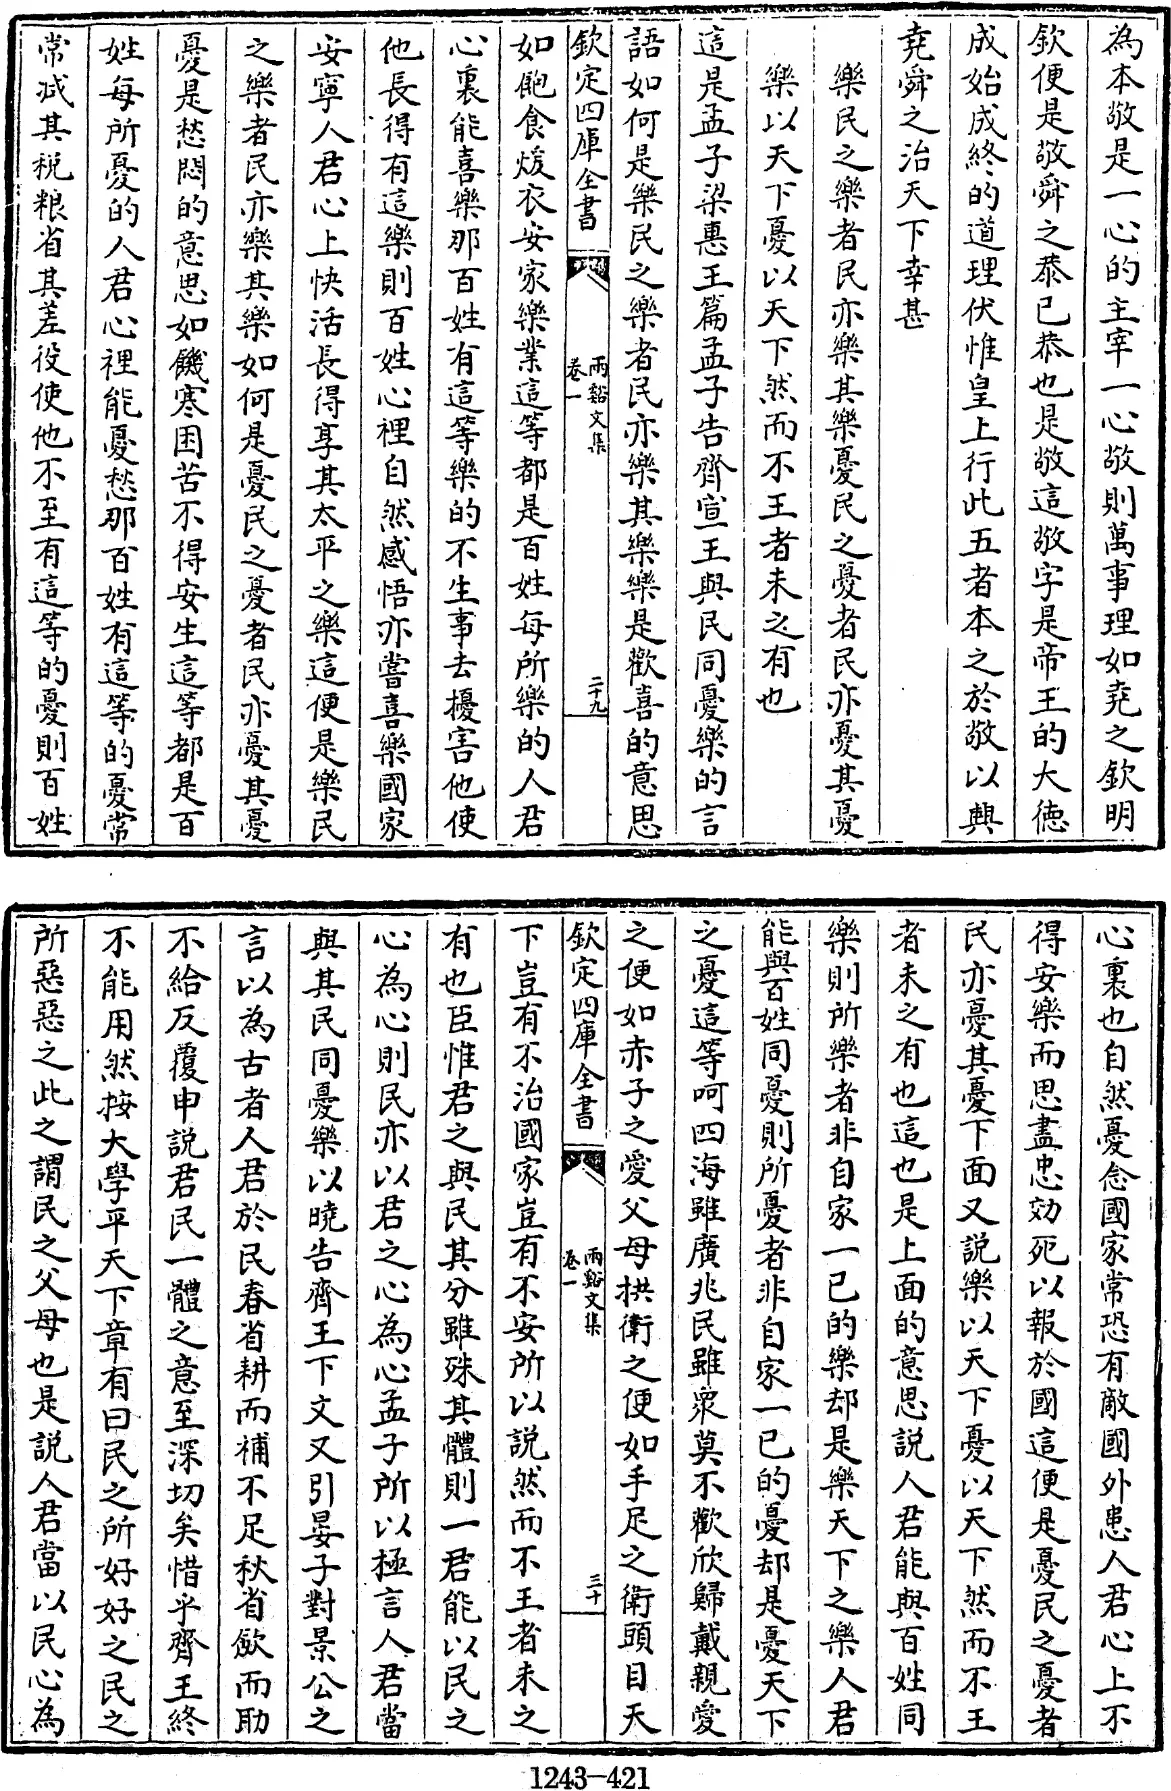 為本敬是一心的主宰一心敬則萬事理如堯之欽明
欽便是敬舜之恭已恭也是敬這敬字是帝王的大德
成始成終的道理伏惟皇上行此五者本之於敬以興
堯舜之治天下幸甚
樂民之樂者民亦樂其樂憂民之憂者民亦憂其憂
樂以天下憂以天下然而不王者未之有也
這是孟子梁惠王篇孟子告齊宣王與民同憂樂的言
語如何是樂民之樂者民亦樂其樂樂是歡喜的意思
欽定四庫全書
兩谿文集
卷一
二十九
如飽食煖衣安家樂業這等都是百姓每所樂的人君
心裏能喜樂那百姓有這等樂的不生事去擾害他使
他長得有這樂則百姓心裡自然感悟亦嘗喜樂國家
安寧人君心上快活長得享其太平之樂這便是樂民
之樂者民亦樂其樂如何是憂民之憂者民亦憂其憂
憂是愁悶的意思如饑寒困苦不得安生這等都是百
姓每所憂的人君心裡能憂愁那百姓有這等的憂常
常減其稅粮省其差役使他不至有這等的憂則百姓
心裏也自然憂念國家常恐有敵國外患人君心上不
得安樂而思盡忠効死以報於國這便是憂民之憂者
民亦憂其憂下面又說樂以天下憂以天下然而不王
者未之有也這也是上面的意思說人君能與百姓同
樂則所樂者非自家一已的樂却是樂天下之樂人君
能與百姓同憂則所憂者非自家一已的憂却是憂天下
之憂這等呵四海雖廣兆民雖衆莫不歡欣歸戴親愛
之便如赤子之愛父母拱衛之便如手足之衛頭目天
欽定四庫全書
兩谿文集
卷一
三十
下豈有不治國家豈有不安所以說然而不王者未之
有也臣惟君之與民其分雖殊其體則一君能以民之
心為心則民亦以君之心為心孟子所以極言人君當
與其民同憂樂以曉告齊王下文又引晏子對景公之
言以為古者人君於民春省耕而補不足秋省斂而助
不給反覆申說君民一體之意至深切矣惜乎齊王終
不能用然按大學平天下章有曰民之所好好之民之
所惡惡之此之謂民之父母也是說人君當以民心為
1243-421